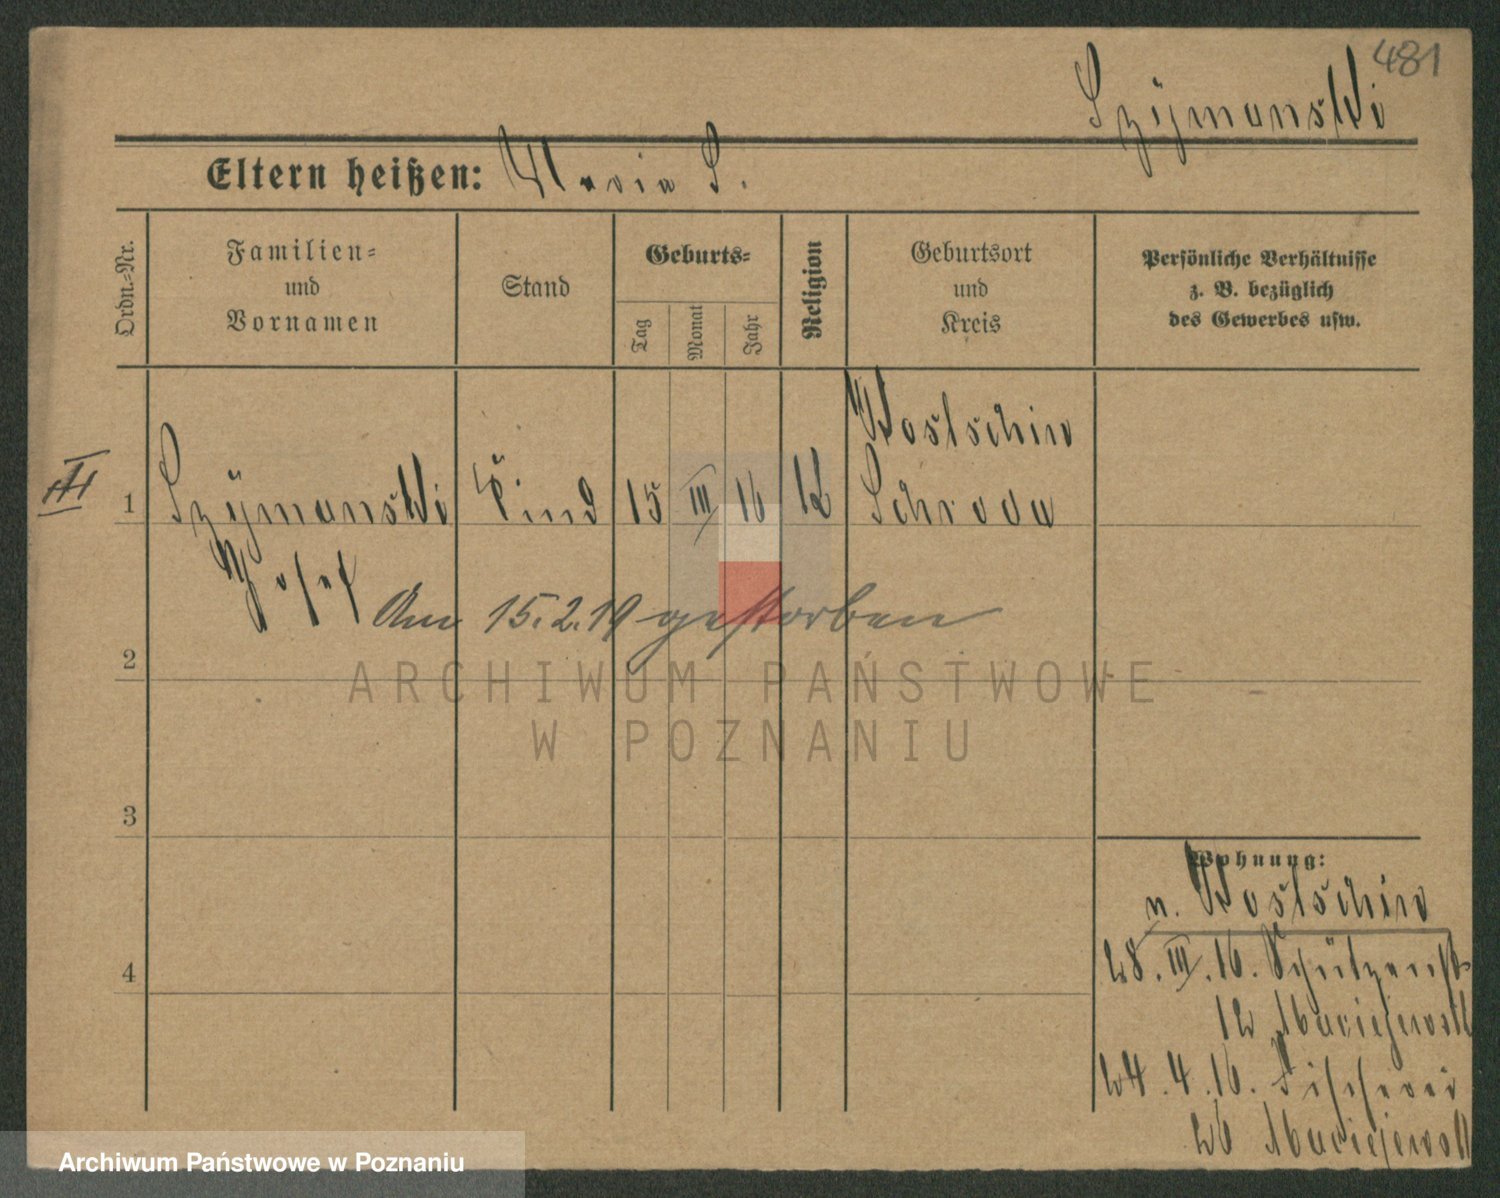 481
Szymanski
Eltern heißen: Maria S.
Ordn.-Nr.
Familien-
und
Vornamen
Stand
Geburts-
Tag
Monat
Jahr
Religion
Geburtsort
und
Kreis
Persönliche Verhältnisse
z. B. bezüglich
des Gewerbes usw.
Kostschin
III
1 Szymanski Kind 15 III 16 K Schroda
Josef
Am 15.2.19 gestorben
2
ARCHIWUM PAŃSTWOWE
W POZNANIU
3
Wohnung:
n. Kostschin
28. III. 16. Schützenstr
12 Maciejewski
4
24. 4. 16. Fischerei
26 Maciejewski
Archiwum Państwowe w Poznaniu